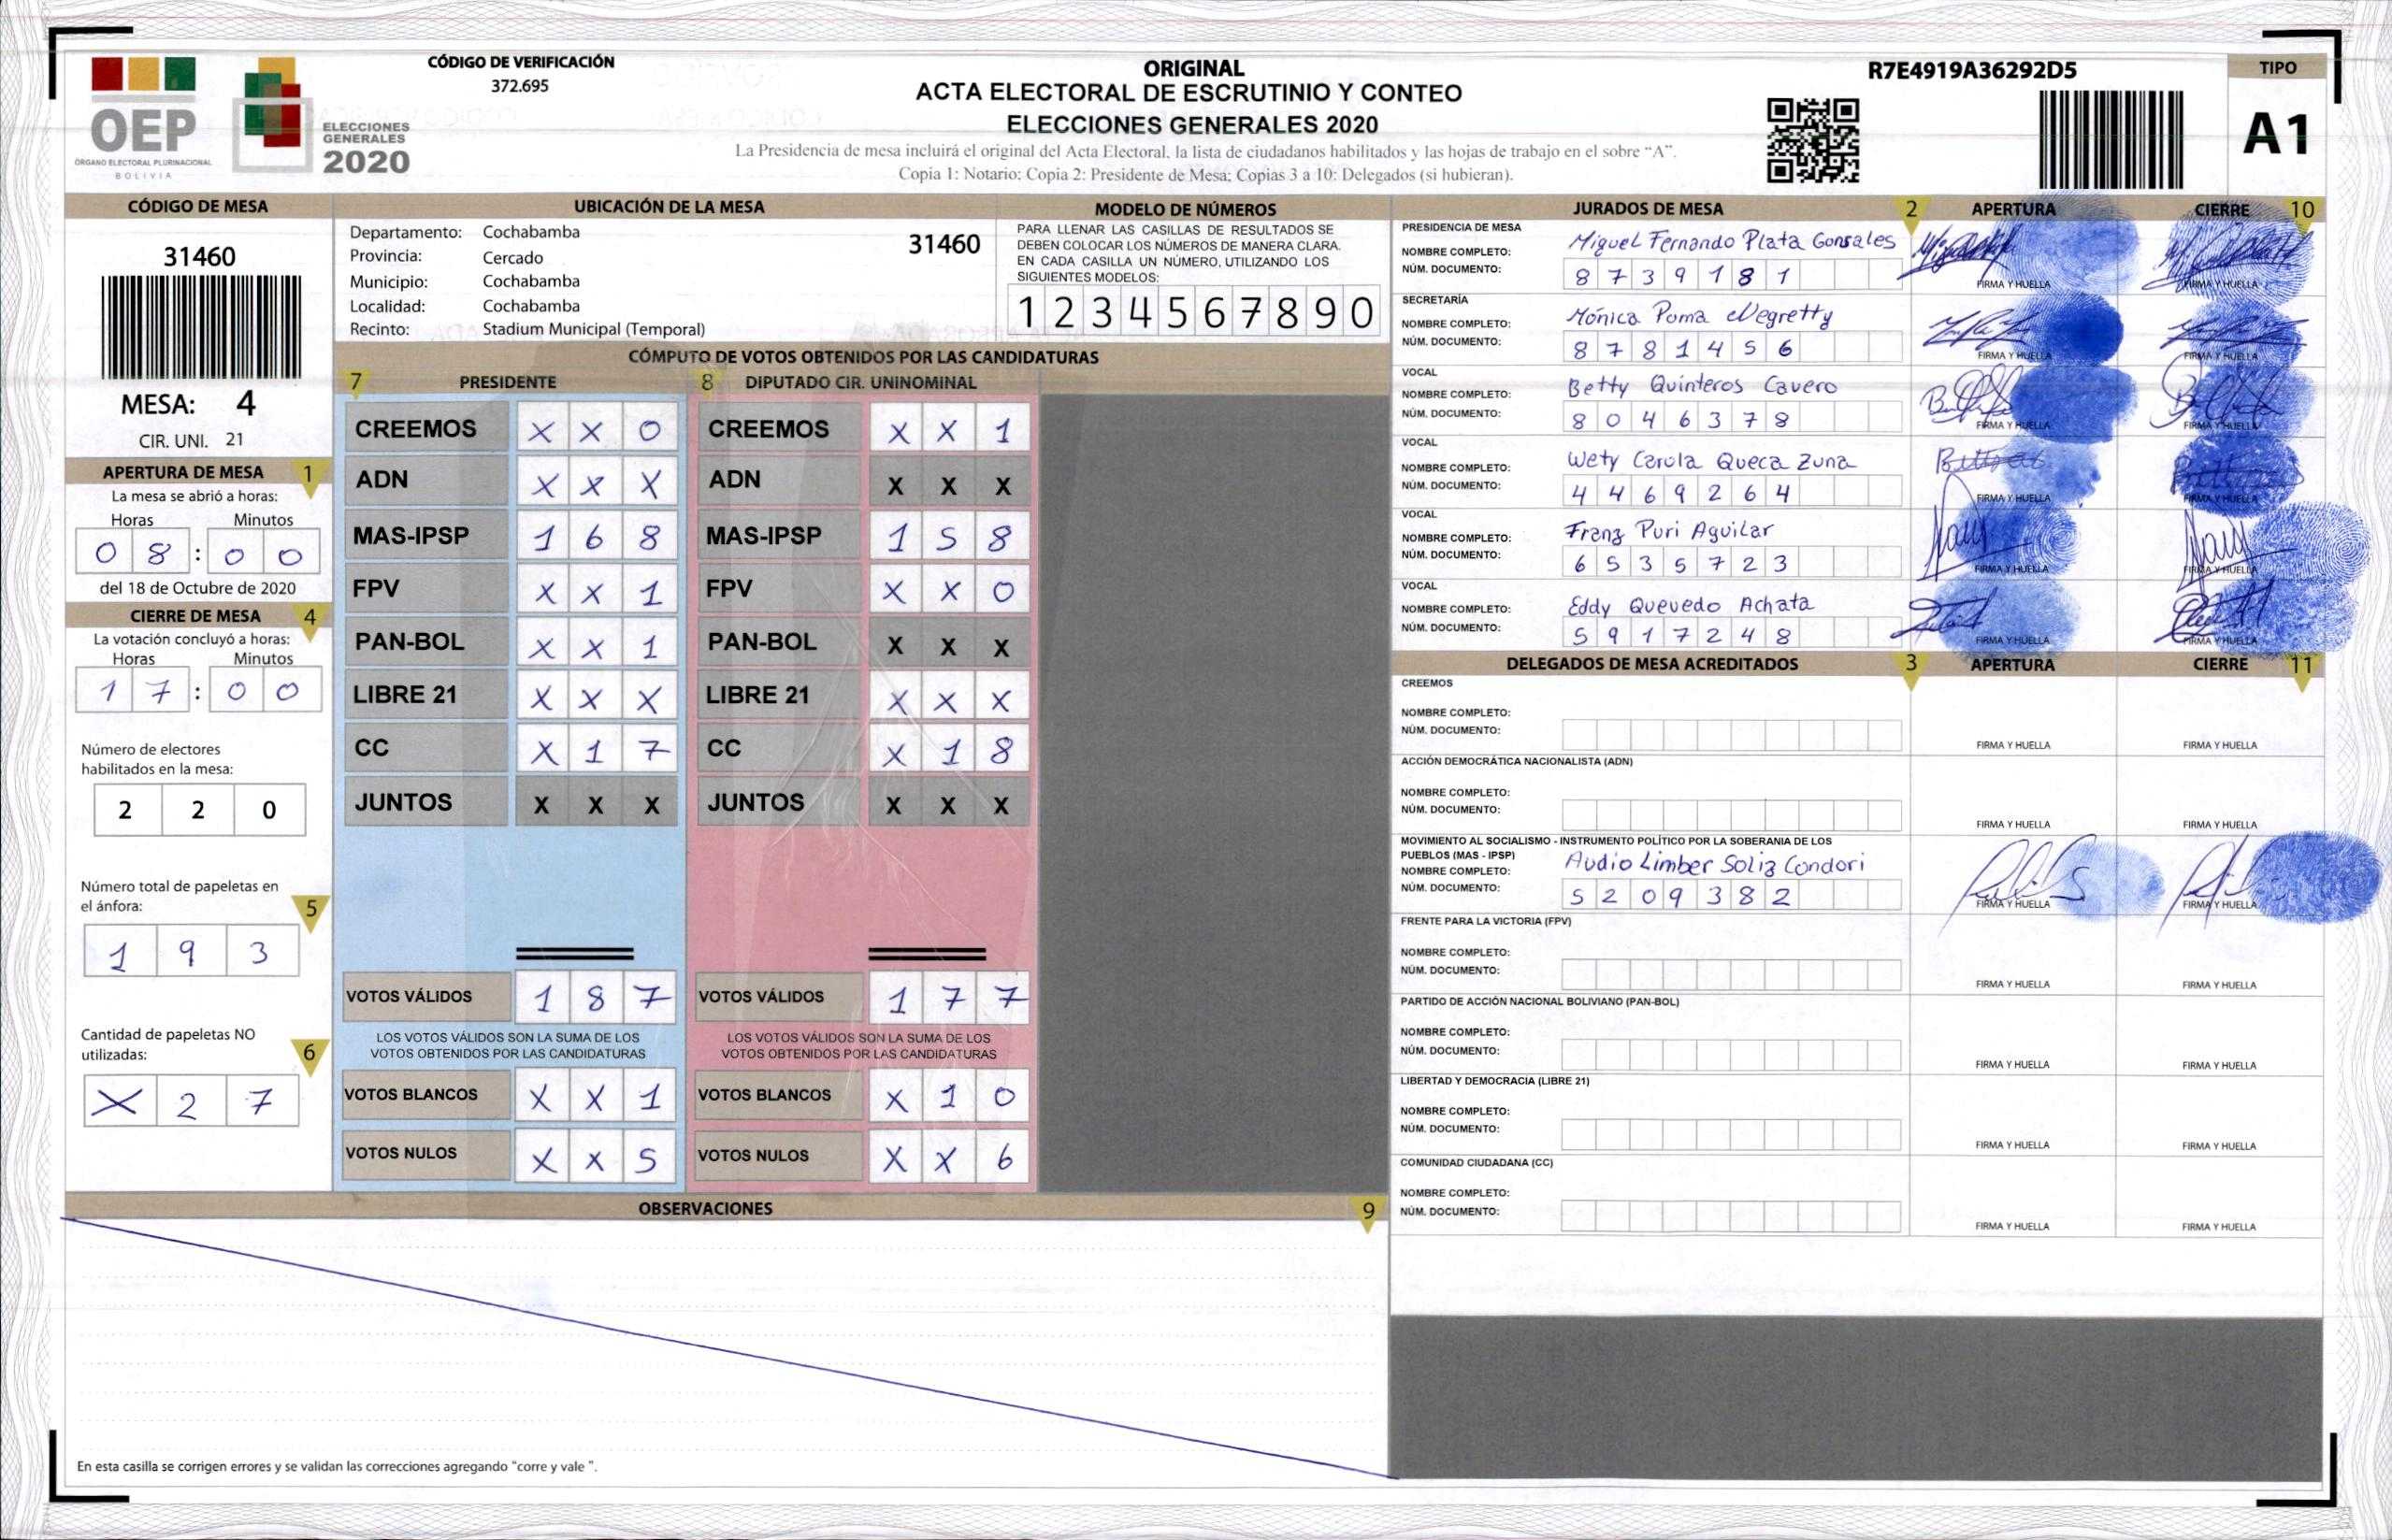 CÓDIGO DE VERIFICACIÓN
372.695
ORIGINAL
ACTA ELECTORAL DE ESCRUTINIO Y CONTEO
ELECCIONES GENERALES 2020
La Presidencia de mesa incluirá el original del Acta Electoral, la lista de ciudadanos habilitados y las hojas de trabajo en el sobre “A”.
Copia 1: Notario; Copia 2: Presidente de Mesa; Copias 3 a 10: Delegados (si hubieran).
R7E4919A36292D5
TIPO
A1
OEP
ÓRGANO ELECTORAL PLURINACIONAL
BOLIVIA
ELECCIONES
GENERALES
2020
CÓDIGO DE MESA
31460
MESA: 4
CIR. UNI. 21
APERTURA DE MESA 1
La mesa se abrió a horas:
Horas Minutos
0 8 : 0 0
del 18 de Octubre de 2020
CIERRE DE MESA 4
La votación concluyó a horas:
Horas Minutos
1 7 : 0 0
Número de electores
habilitados en la mesa:
2 2 0
Número total de papeletas en
el ánfora: 5
1 9 3
Cantidad de papeletas NO
utilizadas: 6
X 2 7
UBICACIÓN DE LA MESA
Departamento: Cochabamba
31460
Provincia: Cercado
Municipio: Cochabamba
Localidad: Cochabamba
Recinto: Stadium Municipal (Temporal)
MODELO DE NÚMEROS
PARA LLENAR LAS CASILLAS DE RESULTADOS SE
DEBEN COLOCAR LOS NÚMEROS DE MANERA CLARA.
EN CADA CASILLA UN NÚMERO, UTILIZANDO LOS
SIGUIENTES MODELOS:
1 2 3 4 5 6 7 8 9 0
CÓMPUTO DE VOTOS OBTENIDOS POR LAS CANDIDATURAS
7 PRESIDENTE 8 DIPUTADO CIR. UNINOMINAL
CREEMOS X X 0 CREEMOS X X 1
ADN X X X ADN X X X
MAS-IPSP 1 6 8 MAS-IPSP 1 5 8
FPV X X 1 FPV X X 0
PAN-BOL X X 1 PAN-BOL X X X
LIBRE 21 X X X LIBRE 21 X X X
CC X 1 7 CC X 1 8
JUNTOS X X X JUNTOS X X X
VOTOS VÁLIDOS 1 8 7 VOTOS VÁLIDOS 1 7 7
LOS VOTOS VÁLIDOS SON LA SUMA DE LOS LOS VOTOS VÁLIDOS SON LA SUMA DE LOS
VOTOS OBTENIDOS POR LAS CANDIDATURAS VOTOS OBTENIDOS POR LAS CANDIDATURAS
VOTOS BLANCOS X X 1 VOTOS BLANCOS X 1 0
VOTOS NULOS X X 5 VOTOS NULOS X X 6
OBSERVACIONES 9
En esta casilla se corrigen errores y se validan las correcciones agregando "corre y vale ".
JURADOS DE MESA 2 APERTURA CIERRE 10
PRESIDENCIA DE MESA
NOMBRE COMPLETO: Miguel Fernando Plata Gonsales
NÚM. DOCUMENTO: 8 7 3 9 1 8 1
FIRMA Y HUELLA FIRMA Y HUELLA
SECRETARÍA
NOMBRE COMPLETO: Mónica Poma Negretty
NÚM. DOCUMENTO: 8 7 8 1 4 5 6
FIRMA Y HUELLA FIRMA Y HUELLA
VOCAL
NOMBRE COMPLETO: Betty Quinteros Cavero
NÚM. DOCUMENTO: 8 0 4 6 3 7 8
FIRMA Y HUELLA FIRMA Y HUELLA
VOCAL
NOMBRE COMPLETO: Wety Carola Queca Zuna
NÚM. DOCUMENTO: 4 4 6 9 2 6 4
FIRMA Y HUELLA FIRMA Y HUELLA
VOCAL
NOMBRE COMPLETO: Franz Puri Aguilar
NÚM. DOCUMENTO: 6 5 3 5 7 2 3
FIRMA Y HUELLA FIRMA Y HUELLA
VOCAL
NOMBRE COMPLETO: Eddy Quevedo Achata
NÚM. DOCUMENTO: 5 9 1 7 2 4 8
FIRMA Y HUELLA FIRMA Y HUELLA
DELEGADOS DE MESA ACREDITADOS 3 APERTURA CIERRE 11
CREEMOS
NOMBRE COMPLETO:
NÚM. DOCUMENTO:
FIRMA Y HUELLA FIRMA Y HUELLA
ACCIÓN DEMOCRÁTICA NACIONALISTA (ADN)
NOMBRE COMPLETO:
NÚM. DOCUMENTO:
FIRMA Y HUELLA FIRMA Y HUELLA
MOVIMIENTO AL SOCIALISMO - INSTRUMENTO POLÍTICO POR LA SOBERANIA DE LOS
PUEBLOS (MAS - IPSP)
NOMBRE COMPLETO: Audio Limber Soliz Condori
NÚM. DOCUMENTO: 5 2 0 9 3 8 2
FIRMA Y HUELLA FIRMA Y HUELLA
FRENTE PARA LA VICTORIA (FPV)
NOMBRE COMPLETO:
NÚM. DOCUMENTO:
FIRMA Y HUELLA FIRMA Y HUELLA
PARTIDO DE ACCIÓN NACIONAL BOLIVIANO (PAN-BOL)
NOMBRE COMPLETO:
NÚM. DOCUMENTO:
FIRMA Y HUELLA FIRMA Y HUELLA
LIBERTAD Y DEMOCRACIA (LIBRE 21)
NOMBRE COMPLETO:
NÚM. DOCUMENTO:
FIRMA Y HUELLA FIRMA Y HUELLA
COMUNIDAD CIUDADANA (CC)
NOMBRE COMPLETO:
NÚM. DOCUMENTO:
FIRMA Y HUELLA FIRMA Y HUELLA